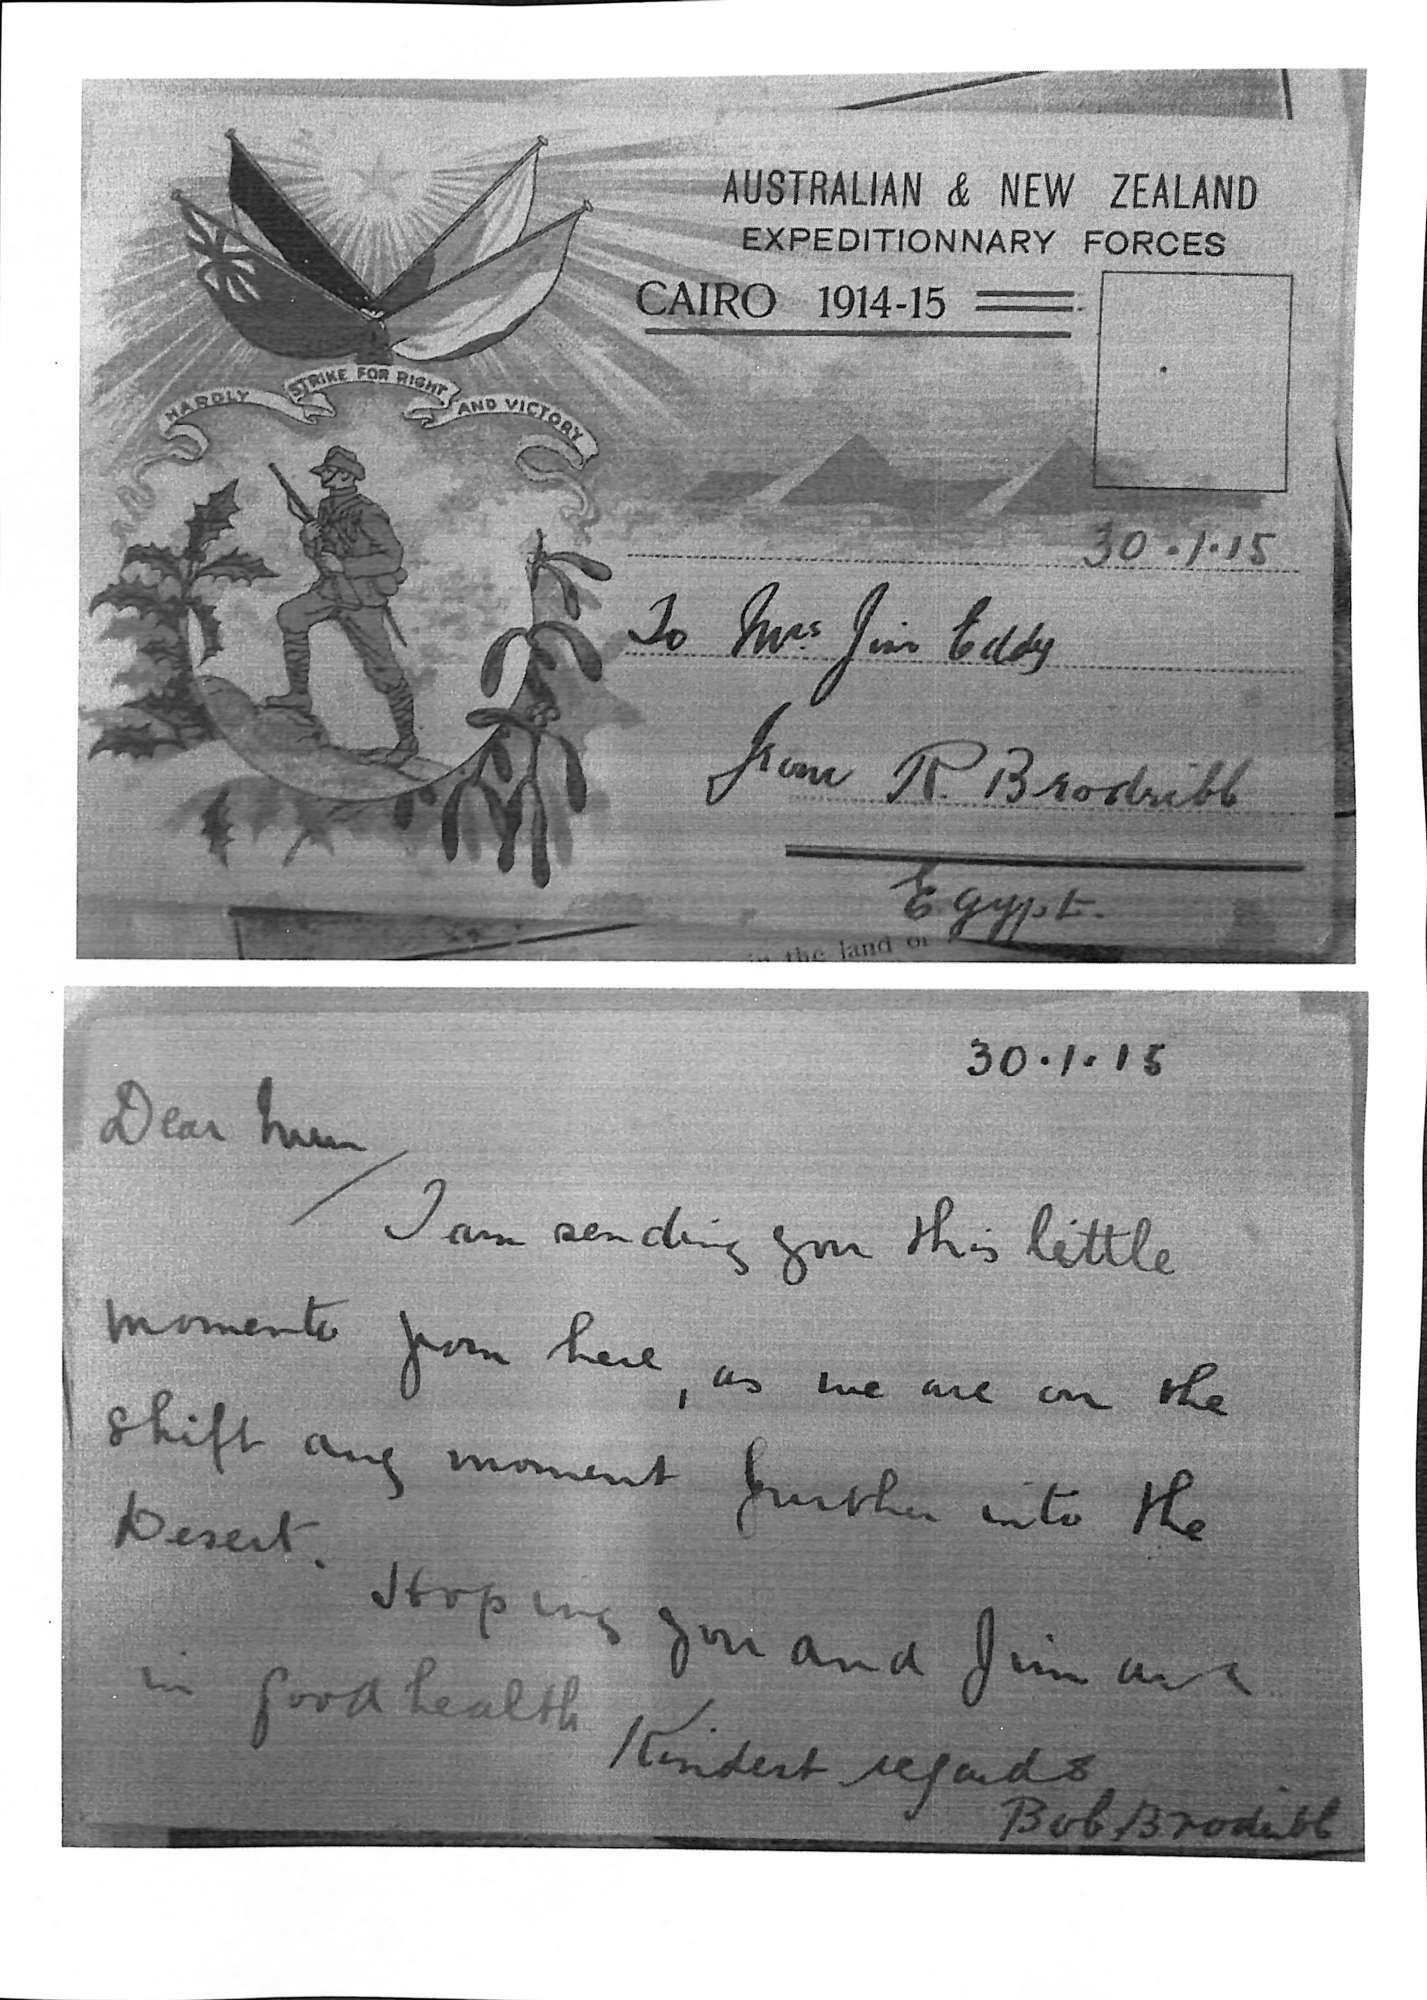 AUSTRALIAN & NEW ZEALAND
EXPEDITIONNARY FORCES
CAIRO 1914-15
HARDLY STRIKE FOR RIGHT AND VICTORY
30.1.15
To Mrs Jim Eddy
from R. Brodribb
Egypt.
the land of
30.1.15
Dear
I am sending you this little
momento from here, as we are on the
shift any moment further into the
Desert.
Hoping you and Jim are
in good health
Kindest regards
Bob Brodribb